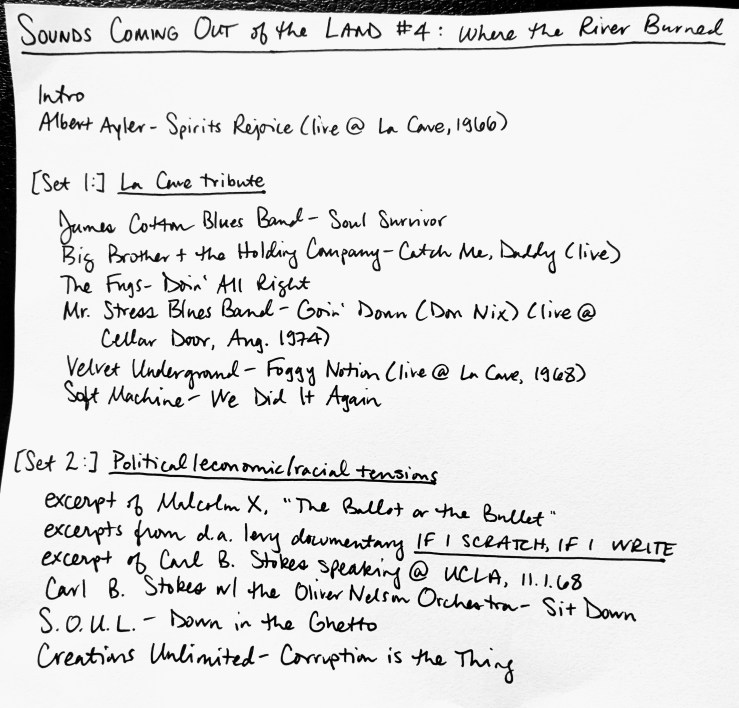 SOUNDS COMING OUT of the LAND #4: Where the River Burned
Intro
Albert Ayler - Spirits Rejoice (live @ La Cave, 1966)
[Set 1:] La Cave tribute
James Cotton Blues Band - Soul Survivor
Big Brother + the Holding Company - Catch Me, Daddy (live)
The Fugs - Doin' All Right
Mr. Stress Blues Band - Goin' Down (Don Nix) (live @
Cellar Door, Aug. 1974)
Velvet Underground - Foggy Notion (live @ La Cave, 1968)
Soft Machine - We Did It Again
[Set 2:] Political/economic/racial tensions
excerpt of Malcolm X, "The Ballot or the Bullet"
excerpts from d.a. levy documentary IF I SCRATCH, IF I WRITE
excerpt of Carl B. Stokes speaking @ UCLA, 11.1.68
Carl B. Stokes w/ the Oliver Nelson Orchestra - Sit Down
S.O.U.L. - Down in the Ghetto
Creations Unlimited - Corruption is the Thing